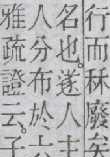 行而秝廢矣
名也。遂人主
人分布於六
雅疏證云。子